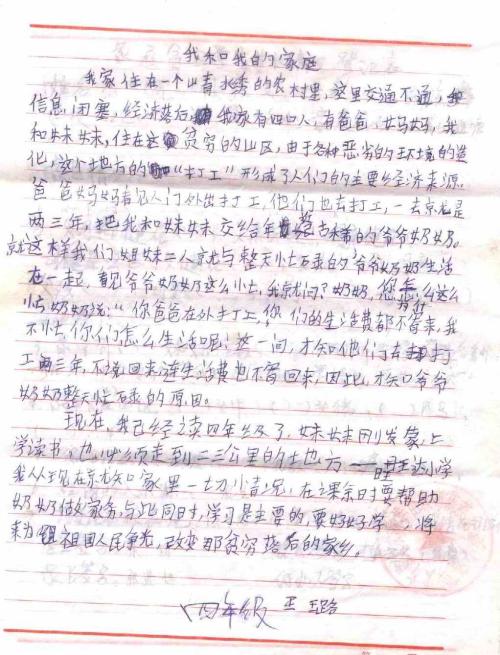 我和我的家庭
我家住在一个山青水秀的农村里，这里交通不通，
信息闭塞，经济落后，我家有四口人：有爸爸，妈妈，我
和妹妹，住在这贫穷的山区，由于各种恶劣的环境的造
化，这个地方的"打工"形成了人们的主要经济来源。
爸爸妈妈看见人们外出打工，他们也去打工，一去就是
两三年，把我和妹妹交给年古稀的爷爷奶奶。
就这样我们姐妹二人就与整天忙碌的爷爷奶奶生活
在一起，看见爷爷奶奶这么忙，我就问？奶奶，您怎么这么
忙，奶奶说："你爸爸在外打工，你们的生活费都不寄来，我
不忙你们怎么生活呢；这一问，才知他们去打
工两三年，不说回来连生活费也不寄回来，因此，才知爷爷
奶奶整天忙碌的原因。
现在，我已经读四年级了，妹妹刚发蒙上
学读书，也必须走到二三公里的地方——旺达小学
我从现在就知家里一切小情况，在课余时要帮助
奶奶做家务，与此同时，学习是主要的，要好好学，将
来为祖国人民争光，改变那贫穷落后的家乡。
四年级 王 路